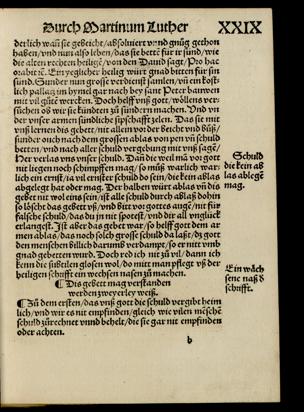 Durch Martinum Luther XXIX
derlich wañ sie gebeicht/absolviert vnnd gnůg gethon
haben/vnd nun also leben/das sie bett für ir sund/wie
die alten rechten heiligē/von den Dauid sagt/Pro hac
orabit ꝛc. Ein yeglicher heilig würt gnad betten für sin
sünd. Sunder nun grosse verdienst samlen/vñ ein köst
lich pallast im hymel gar nach bey sant Peter bauwen
mit vil gůtē wercken. Doch helff vnß gott/wöllens ver=
sůchen ob wir sie kündten zů sündern machen. Vnd vn
der vnser armen sündliche sipschafft zelen. Das sie mit
vnß lernen dis gebett/nit allein vor der beicht vnd bůß/
sunder ouch nach dem grossen ablas von pen vñ schuld
betten/vnd nach aller schuld vergebung mit vnß sagē/
Her verlas vns vnser schuld. Dañ die weil mā vor gott
nit liegen noch schimpffen mag/so můß warlich war=
lich ein ernst/ia vil ernster schuld do sein/die kein ablas
abgelegt hat oder mag. Der halben würt ablas vñ dis
gebet nit wol eins sein/ist alle schuld durch ablaß dohin
so lösche das gebett vß/vnd bitt vor gottes augē/nit für
falsche schuld/das du jn nit spotest/vnd dir all vnglück
erlangest. Ist aber das gebet war/so helff gott dem ar
men ablas/das noch solch grosse schuld da laßt/dz gott
den menschen billich darumb verdampt/so er nitt vmb
gnad gebetten wurt. Doch red ich nit zů vil/dann ich
kenn die süßlen glosen wol/do mitt man pflegt vß der
heiligen schrifft ein wechsen nasen zů machen.
Schuld
die kein ab
las ablegē
mag.
Ein wäch
sene naß ð
schrifft.
¶ Dis gebet mag verstanden
werden zweyerley weiß.
¶ Zů dem ersten/das vnß gott die schuld vergibt heim
lich/vnd wir es nit empfinden/gleich wie vilen mēschē
schuld zůrechnet vnnd behelt/die sie gar nit empfinden
oder achten.
b